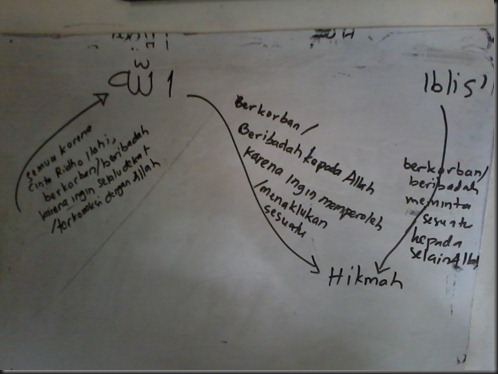 الله
Iblis
semua karena
cinta Ridho Ilahi,
berkorban/beribadah
karena ingin selalu dekat
/terkoneksi dengan Allah
Berkorban/
Beribadah kepada Allah
karena ingin memperoleh
/menaklukan
sesuatu
berkorban/
beribadah
meminta
sesuatu
kepada
selain Allah
Hikmah